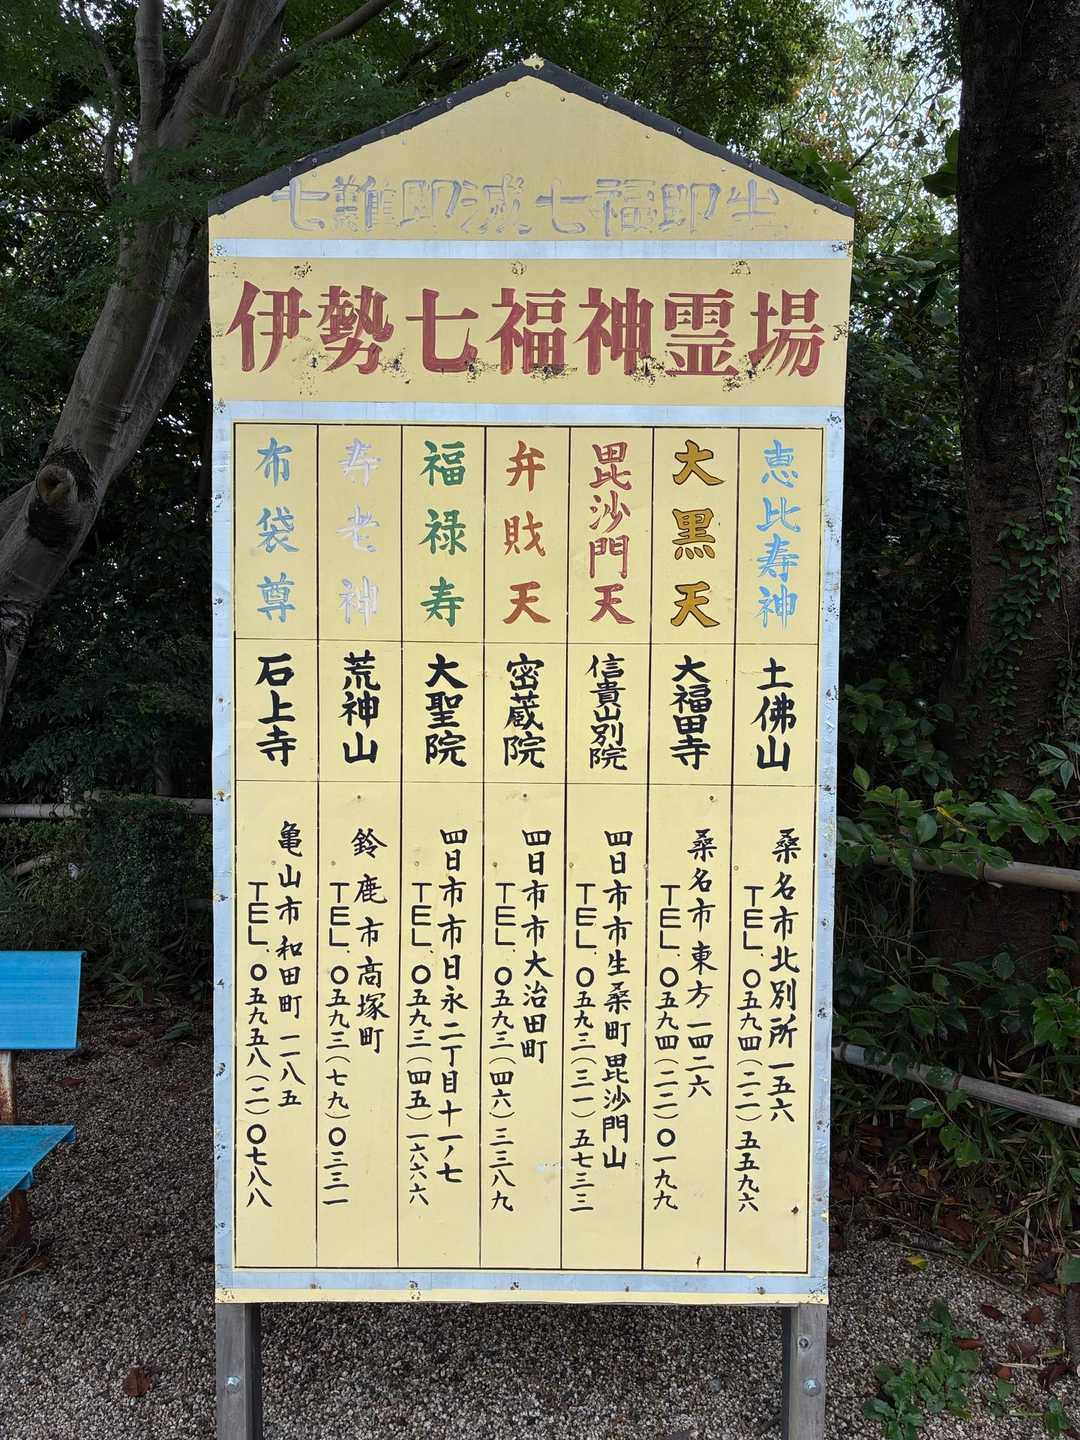 七難即滅七福即生
伊勢七福神霊場
恵比寿神
土佛山
桑名市北別所一五六
TEL.〇五九四(二二)五五九六
大黒天
大福田寺
桑名市東方一四二六
TEL.〇五九四(二二)〇一九九
毘沙門天
信貴山別院
四日市市生桑町毘沙門山
TEL.〇五九三(三一)五七三三
弁財天
密蔵院
四日市市大治田町
TEL.〇五九三(四六)三三八九
福禄寿
大聖院
四日市市日永二丁目十一ノ七
TEL.〇五九三(四五)一六六六
寿老神
荒神山
鈴鹿市高塚町
TEL.〇五九三(七九)〇三三一
布袋尊
石上寺
亀山市和田町一一八五
TEL.〇五九五八(二)〇七八八